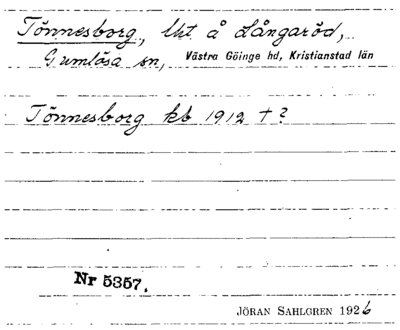 Tönnesborg, lht å Långaröd,
Gumlösa sn, Västra Göinge hd, Kristianstad län
Tönnesborg kb 1912 †?
Nr 5357.
JÖRAN SAHLGREN 1926